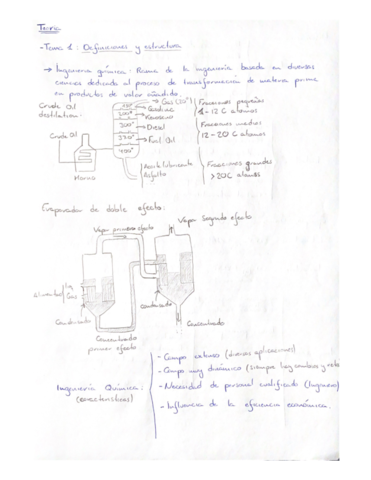 Teoria
- Tema 1: Definiciones y estructura
→ Ingenieria química: Rama de la ingeniería basada en diversas
ciencias dedicada al proceso de transformación de materia prima
en productos de valor añadido.
Crude Oil
destilation:
Crude Oil
Horno
Gas (20°)
Gasolina
Keroseno
Diesel
Fuel Oil
Aceite lubricante
Asfalto
300°
400°
Fracciones pequeñas
C atomos
Fracciones medias
12 - 20 C atomos
Fracciones grandes
>20 C atomos
Evaporador de doble efecto:
Vapor primero efecto
Vapor segundo efecto
Gas
Condensado
Concentrado
primer efecto
condensado
Concentrado
Ingenieria Química:
(características)
- Campo extenso (diversas aplicaciones)
- Campo muy dinámico (siempre hay cambios y
- Necesidad de personal cualificado (Ingeniero)
- Influencia de la eficiencia económica.